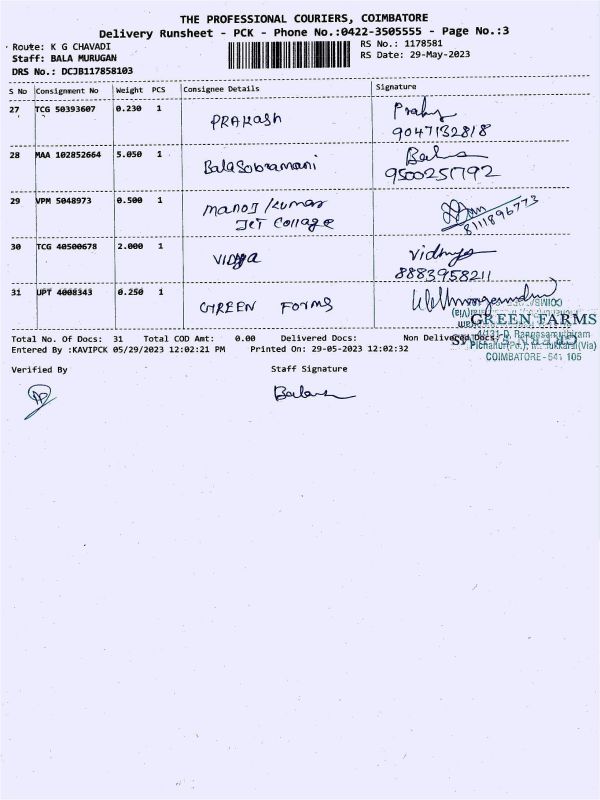 THE PROFESSIONAL COURIERS, COIMBATORE
Delivery Runsheet - PCK - Phone No.:0422-3505555 - Page No.:3
Route: K G CHAVADI
RS No.: 1178581
Staff: BALA MURUGAN
RS Date: 29-May-2023
DRS No.: DCJB117858103
S No Consignment No Weight PCS Consignee Details Signature
27 TCG 50393607 0.230 1 PRAKASH
9047132818
28 MAA 102852664 5.050 1 BalaSobramani Bala
9500251792
29 VPM 5048973 0.500 1 MANOJ KUMAR
JCT Collage
8111896773
30 TCG 40500678 2.000 1 VIDYA vidhya
8883958211
31 UPT 4008343 0.250 1 GREEN FORMS
GREEN FARMS
COIMBATORE - 641 105
Total No. Of Docs: 31 Total COD Amt: 0.00 Delivered Docs: Non Delivered Docs:
Entered By :KAVIPCK 05/29/2023 12:02:21 PM Printed On: 29-05-2023 12:02:32
Verified By Staff Signature